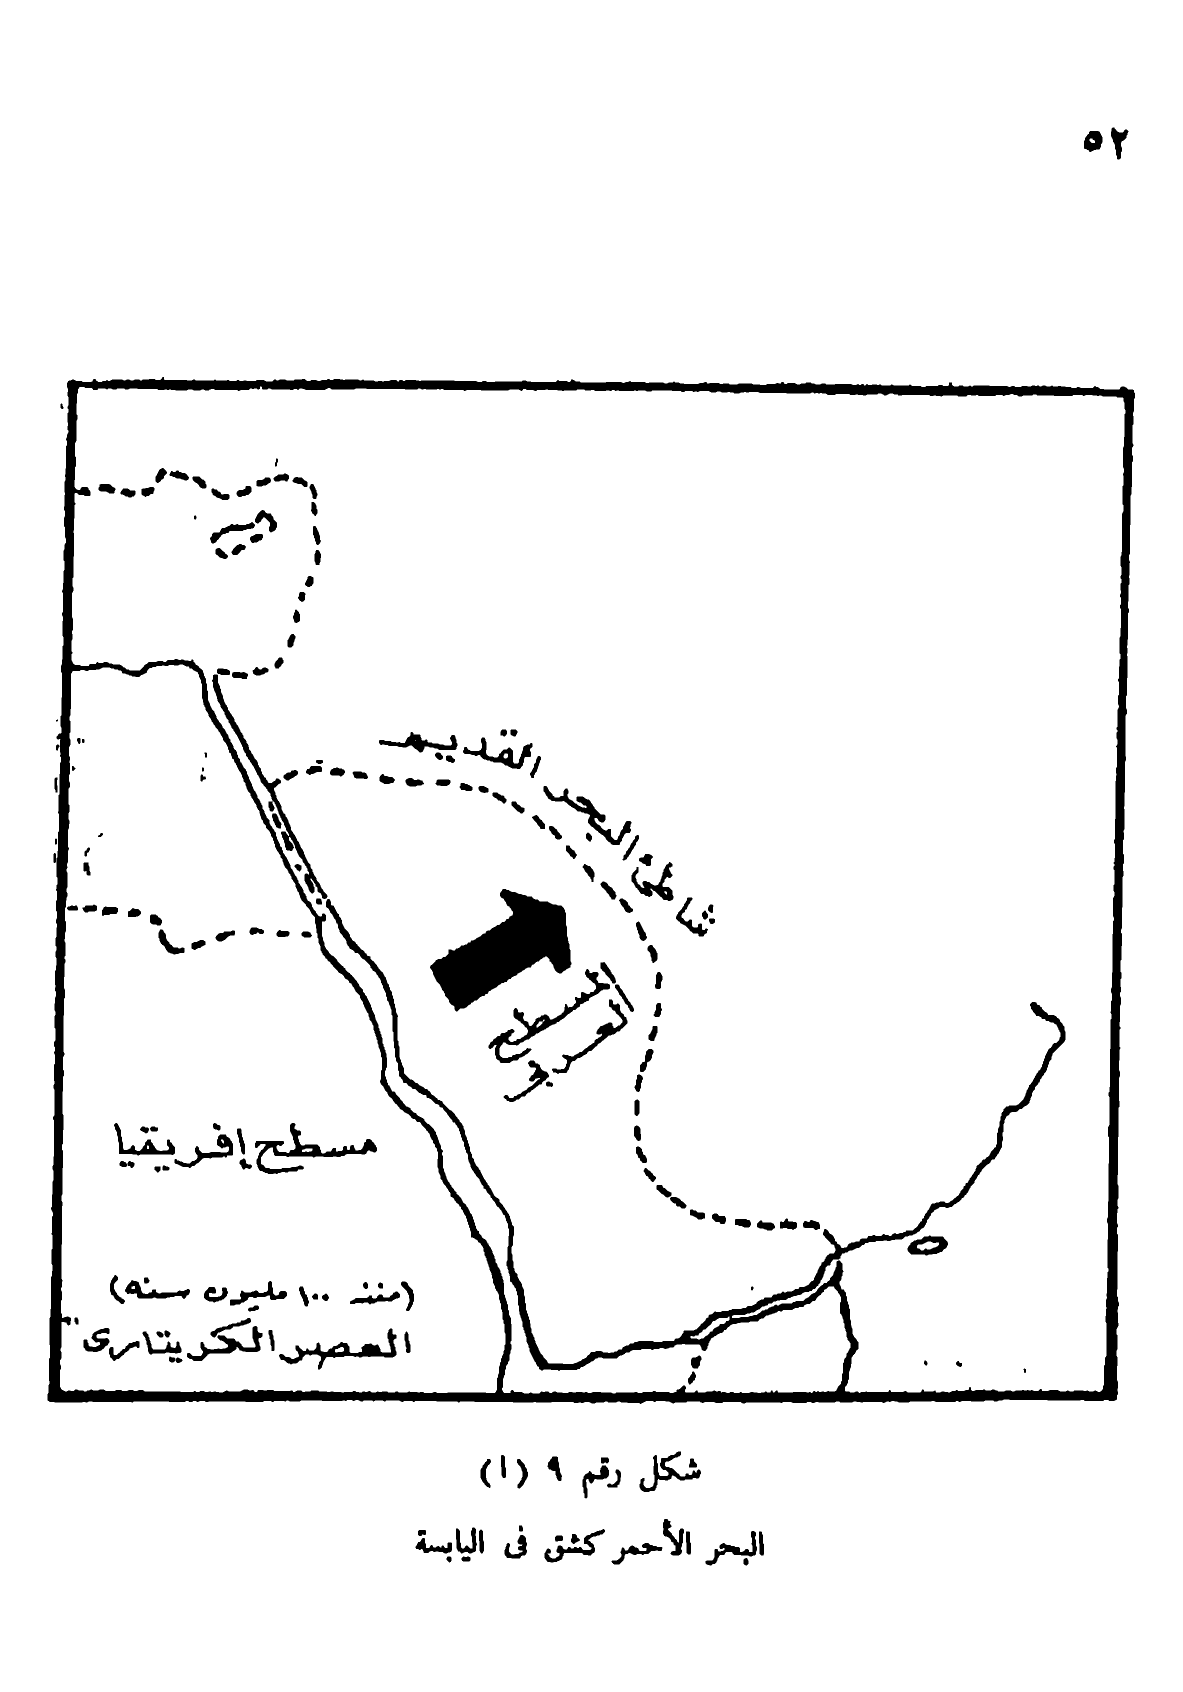 ٥٢
شاطئ البحر القديم
المسطح
العربى
مسطح إفريقيا
(منذ ١٠٠ مليون سنه)
العصر الكريتارى
شكل رقم ٩ (ا)
البحر الأحمر كشق فى اليابسة